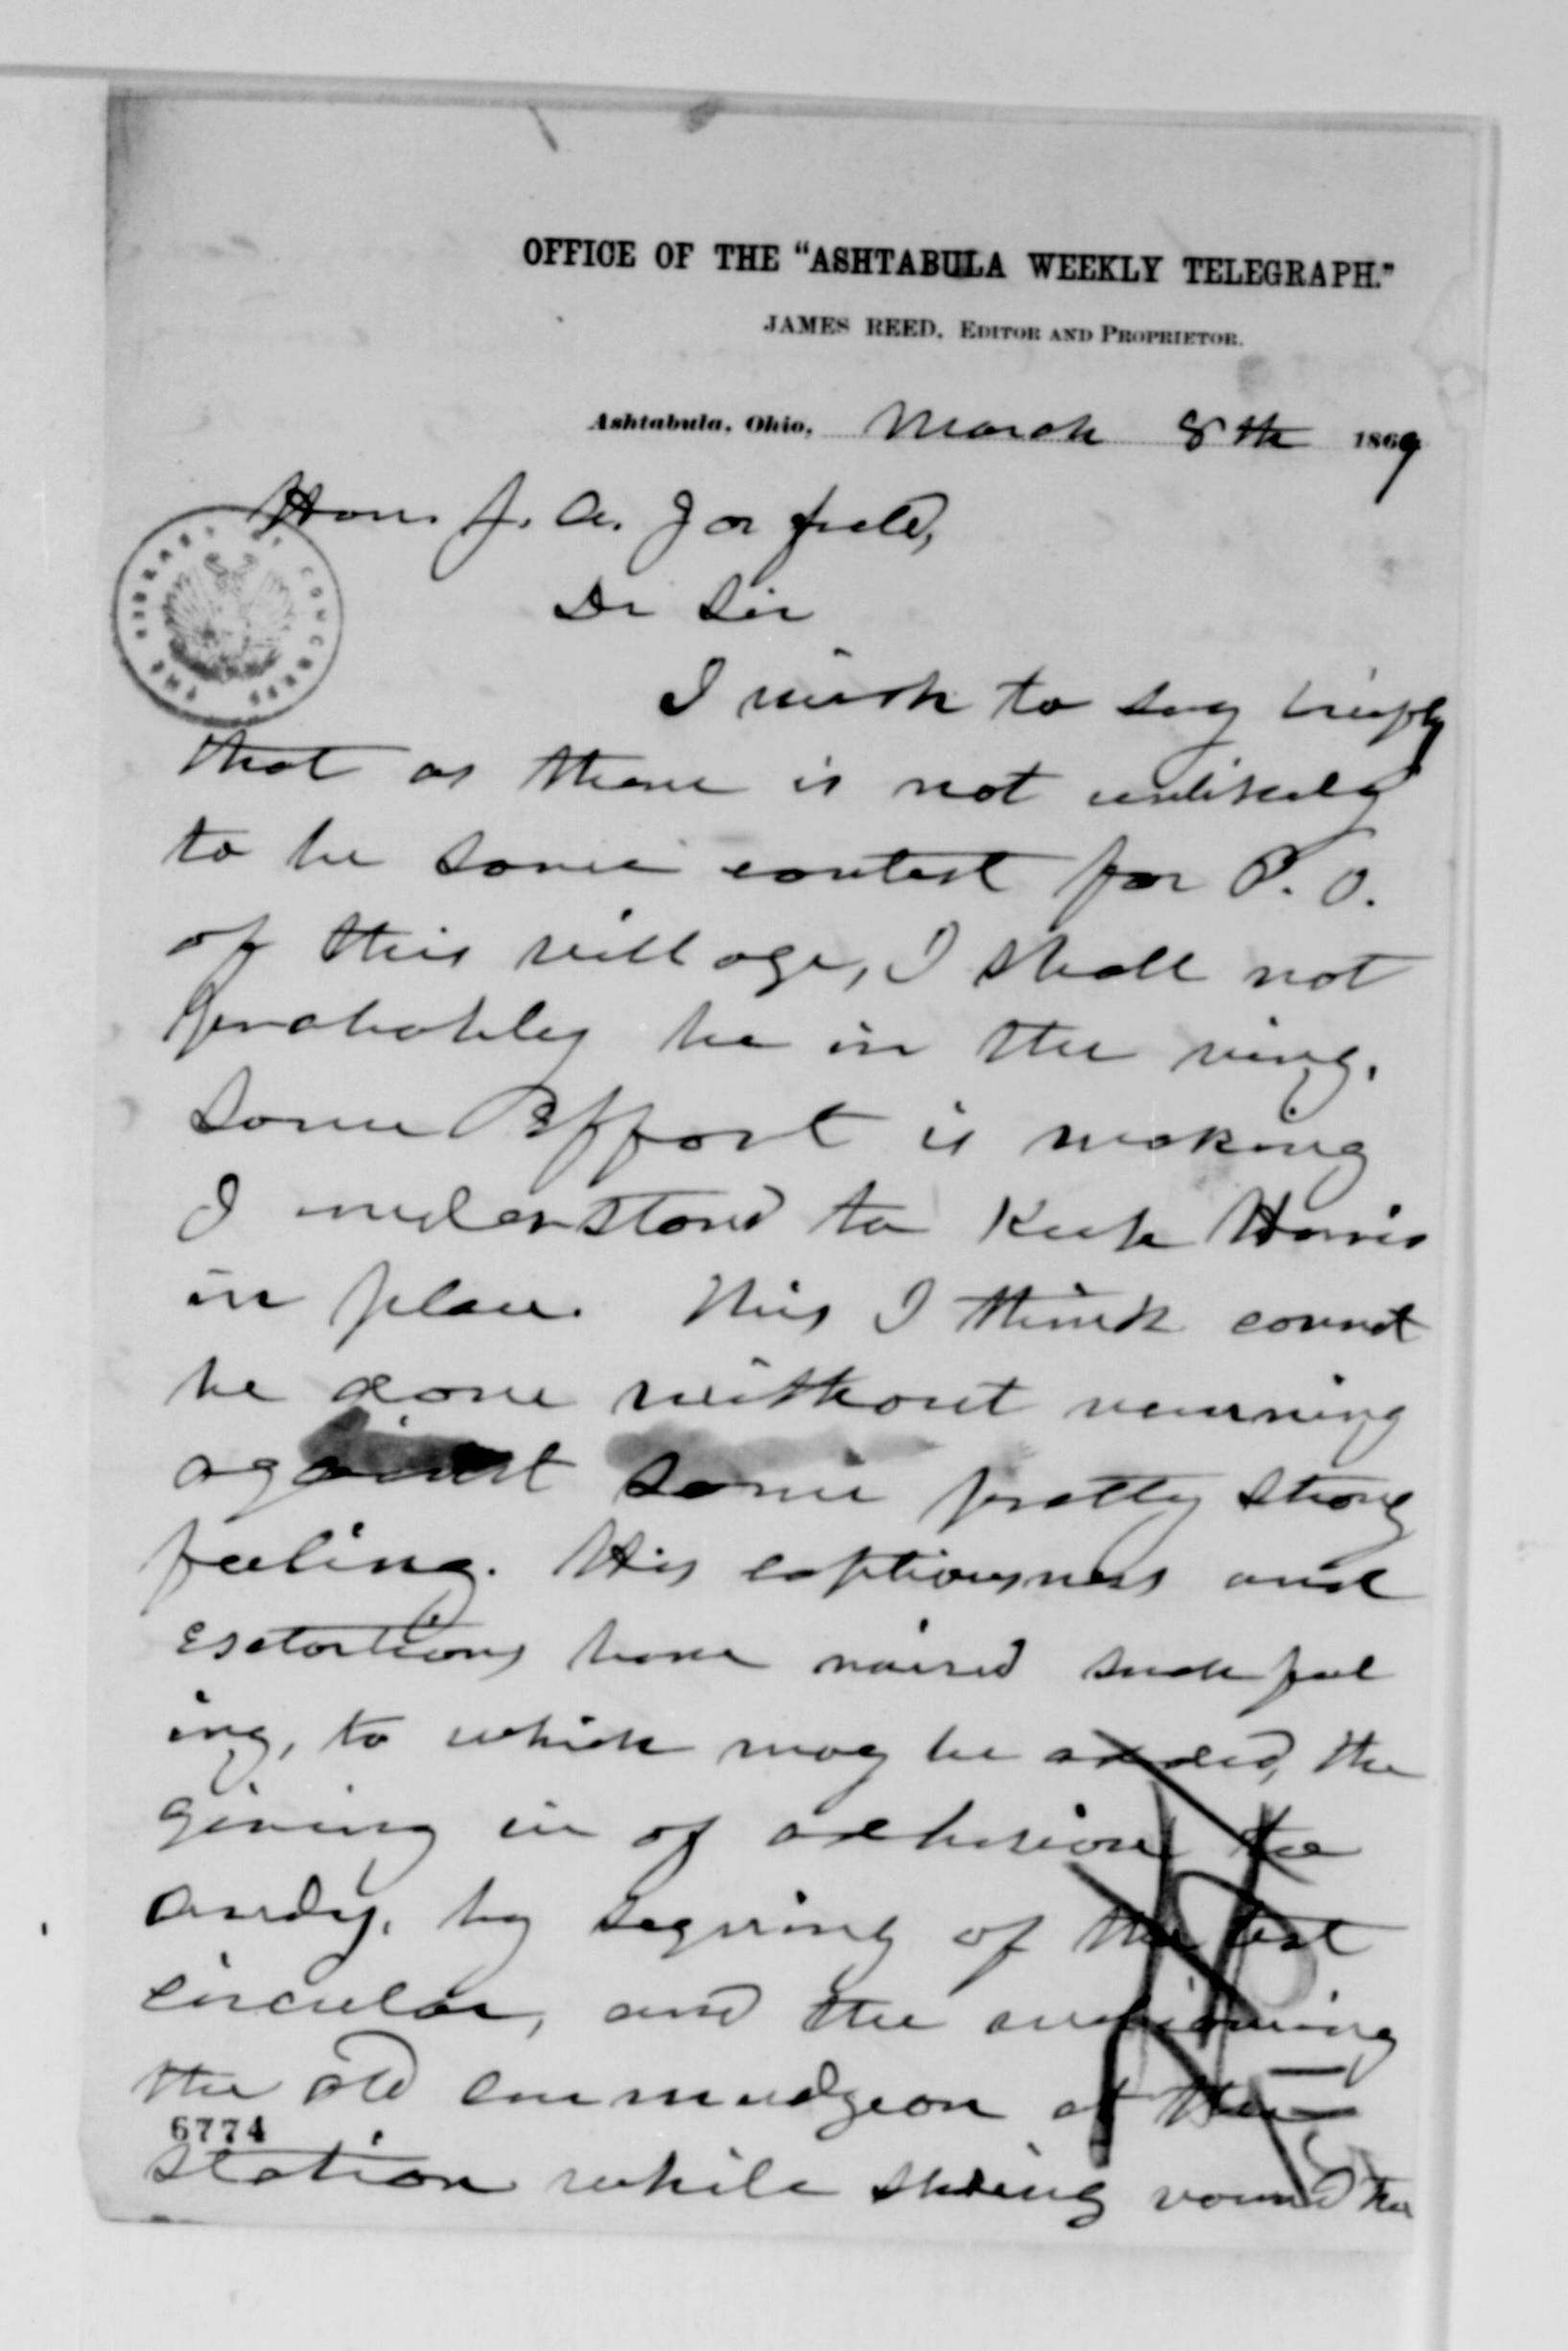 OFFICE OF THE "ASHTABULA WEEKLY TELEGRAPH."
JAMES REED, EDITOR AND PROPRIETOR.
Ashtabula, Ohio, March 8th 1869
THE LIBRARY OF CONGRESS
Hon. J. A. Garfield,
Dr Sir
I wish to say briefly
that as there is not unlikely
to be some contest for P. O.
of this village, I shall not
probably be in the ring.
Some Effort is making
I understand to Keep Harris
in place. This I think cannot
be done without running
against some pretty strong
feeling. His captiousness and
extortions have raised such feel
ing, to which may be added, the
giving in of adhesion to
Andy, by signing of the test
circular, and the
the old curmudgeon at the
station while swing round the
6774